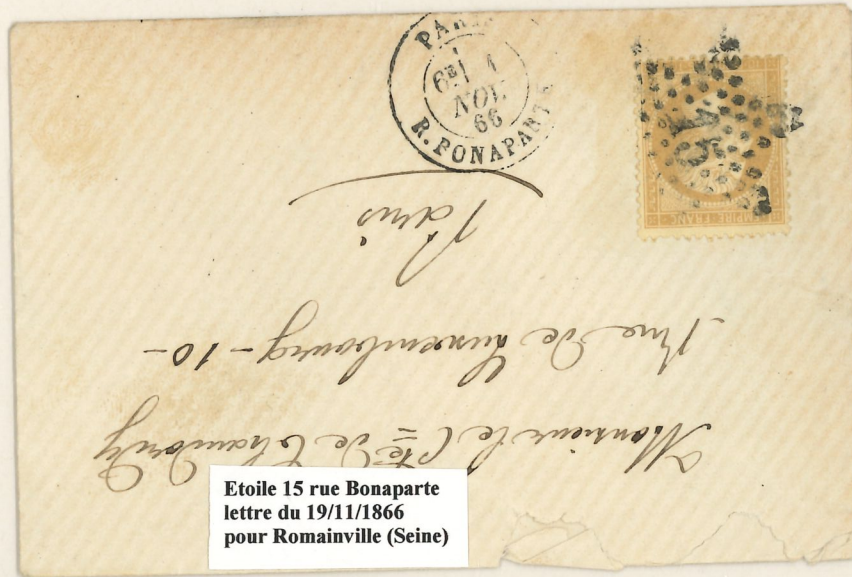 PARIS
NOV.
66
R. BONAPARTE
15
EMPIRE FRANC
Monsieur le Cte de Chaudordy
Rue de Luxembourg - 10 -
Paris
Etoile 15 rue Bonaparte
lettre du 19/11/1866
pour Romainville (Seine)